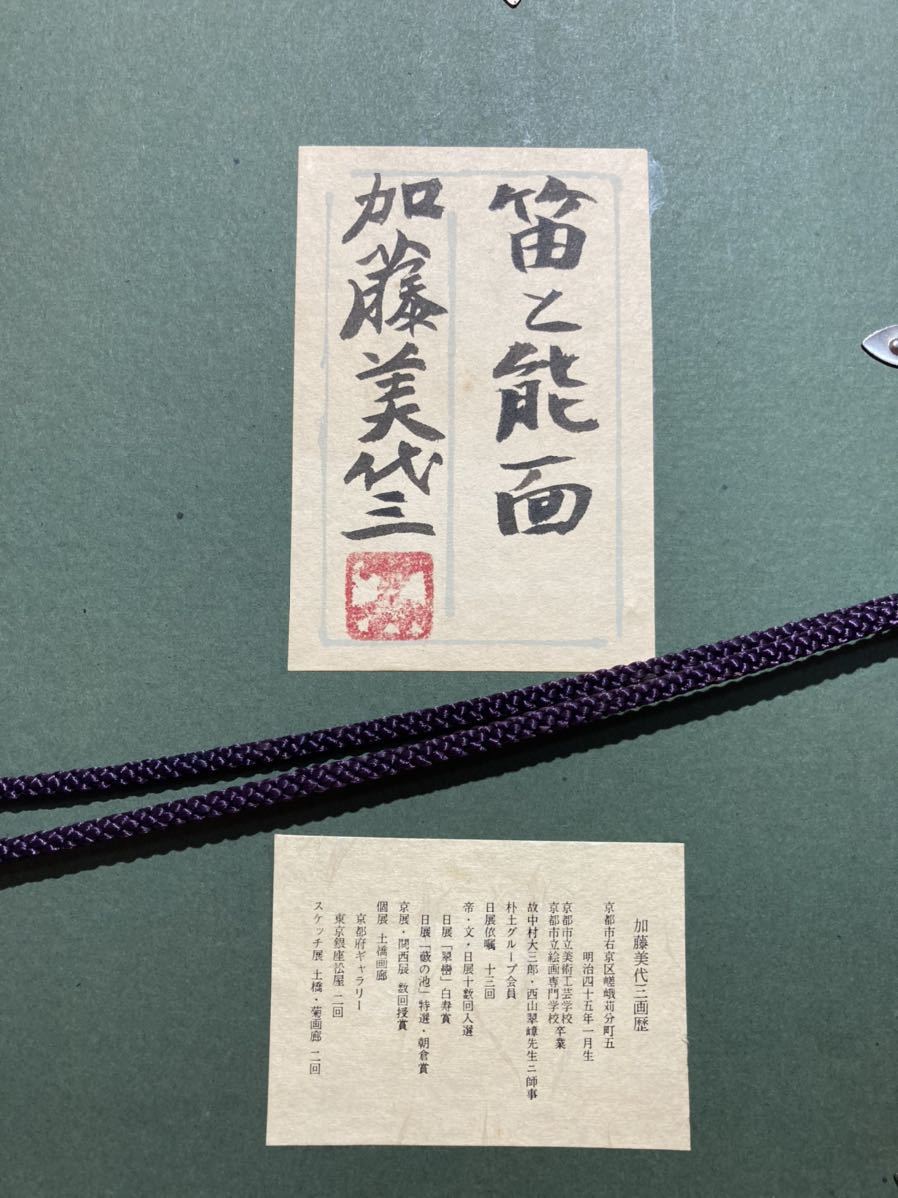 笛と能面
加藤美代三
加藤美代三画歴
京都市右京区嵯峨苅分町五
明治四十五年一月生
京都市立美術工芸学校
京都市立絵画専門学校卒業
故中村大三郎・西山翠嶂先生ニ師事
朴土グループ会員
日展依嘱 十三回
帝・文・日展十数回入選
日展「翠巒」白寿賞
日展「藪の池」特選・朝倉賞
京展・関西展 数回授賞
個展 土橋画廊
京都府ギャラリー
東京銀座松屋 二回
スケッチ展 土橋・菊画廊 二回